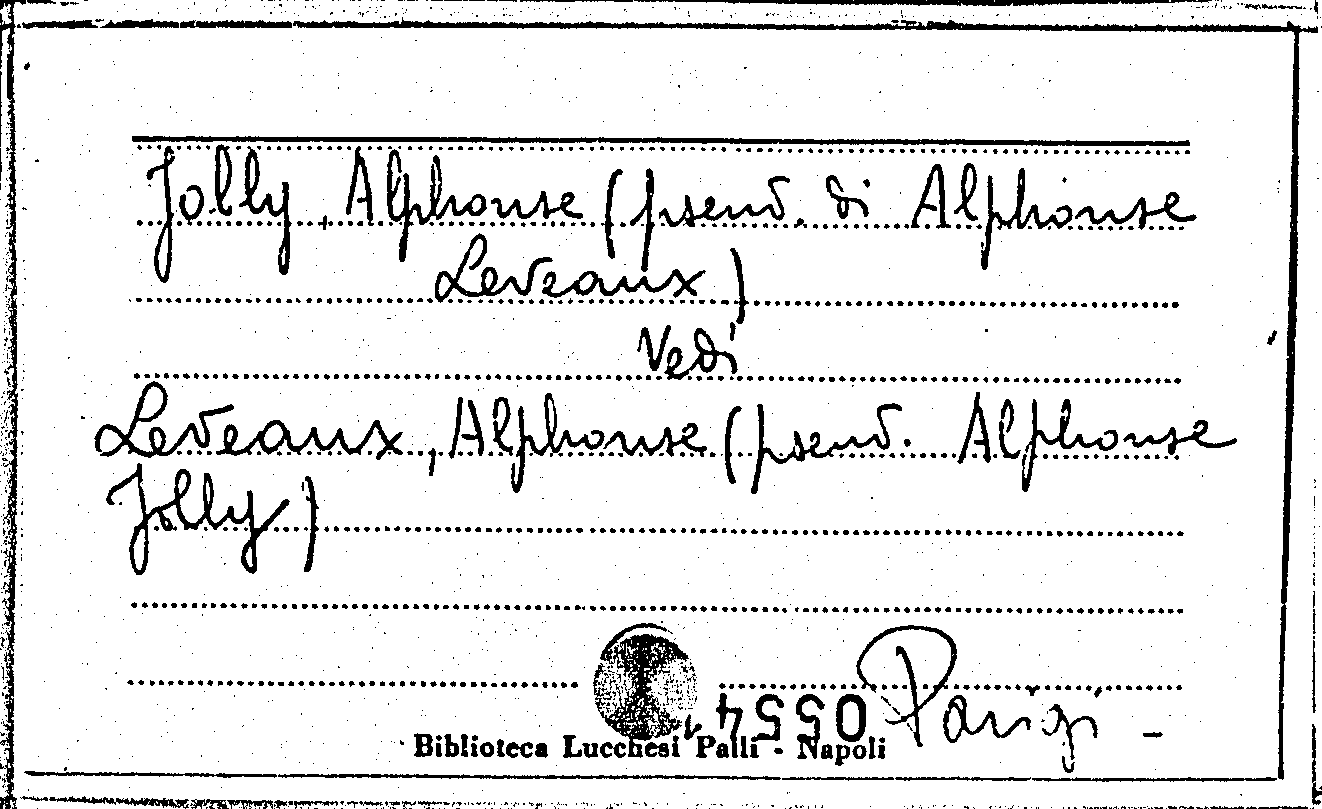 Jolly, Alphonse (pseud. di Alphonse
Leveaux)
Vedi
Leveaux, Alphonse (pseud. Alphonse
Jolly)
0554
Parigi -
Biblioteca Lucchesi Palli - Napoli